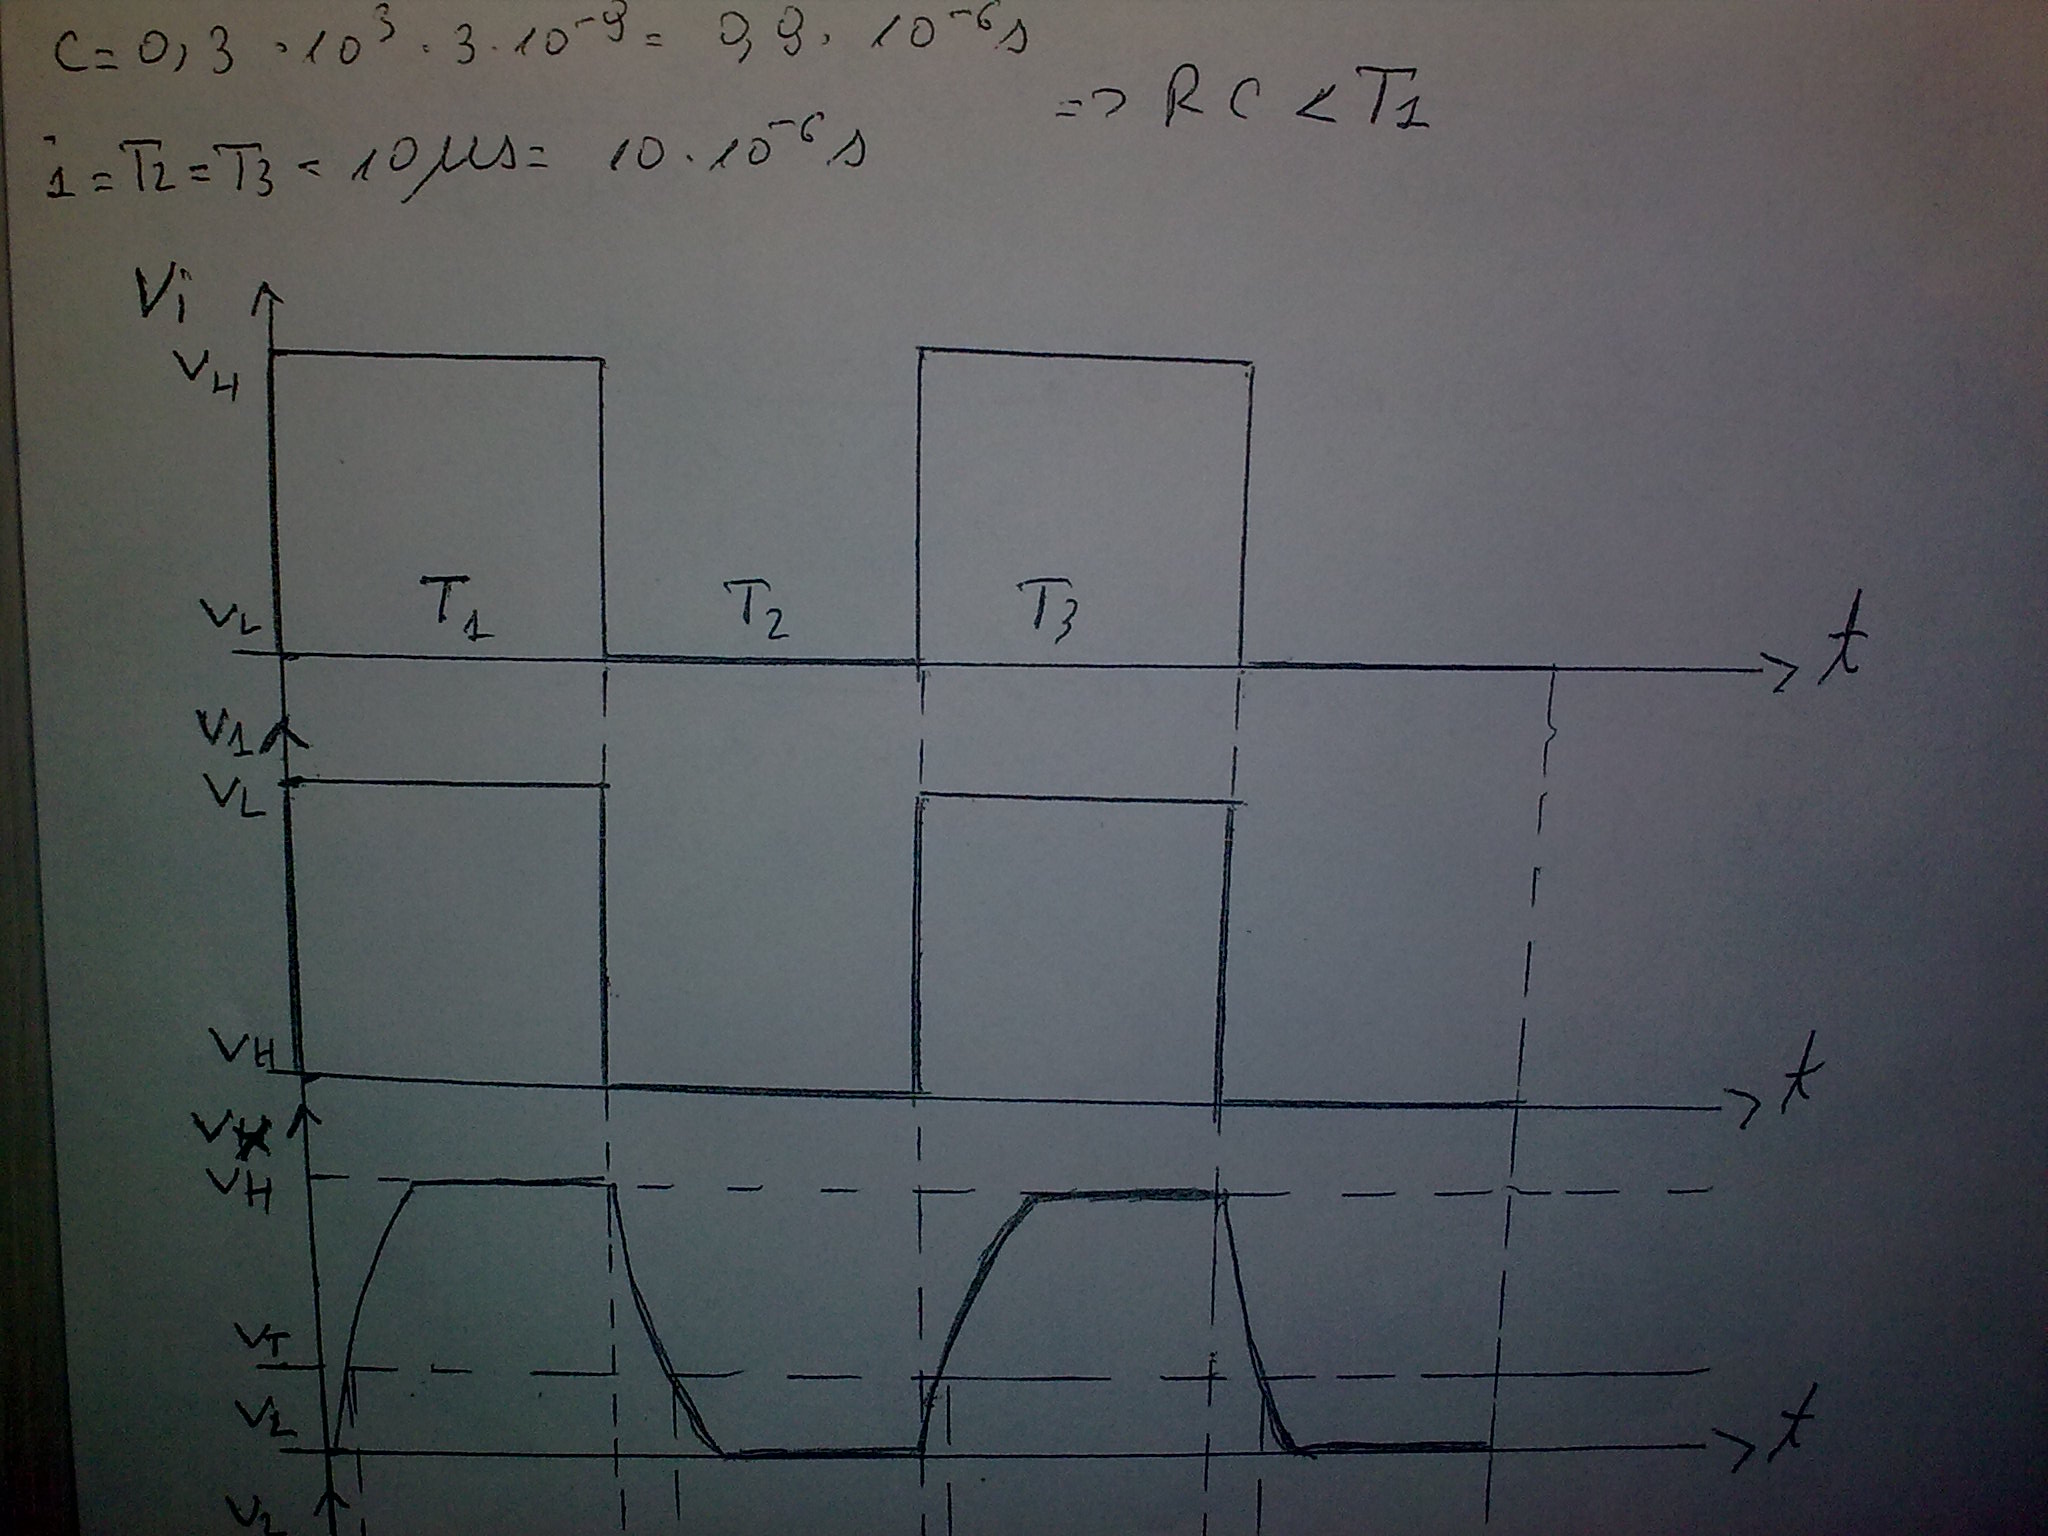 C = 0,3 · 10³ · 3 · 10⁻⁹ = 0,9 · 10⁻⁶ s
=> RC < T1
1 = T2 = T3 = 10 μs = 10 · 10⁻⁶ s
Vi
VH
T1 T2 T3
VL
t
V1
VL
VH
t
VH
VT
VL
t
V2